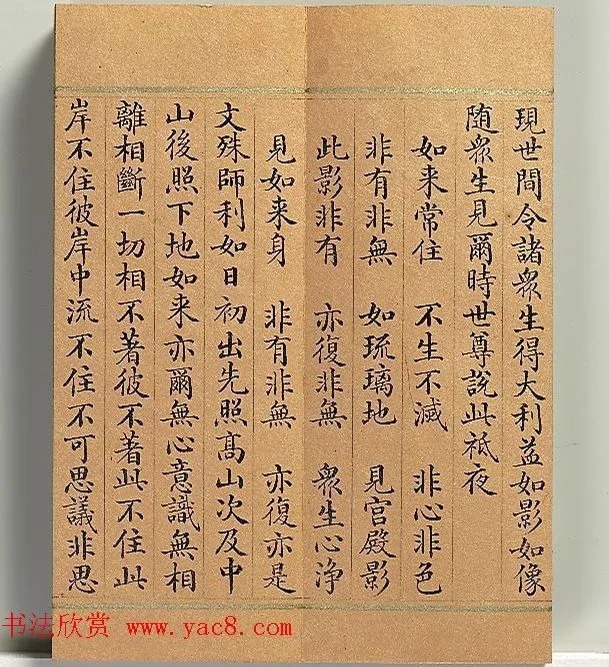 現世間令諸衆生得大利益如影如像
随衆生見爾時世尊說此祇夜
如来常住 不生不滅 非心非色
非有非無 如琉璃地 見宫殿影
此影非有 亦復非無 衆生心浄
見如来身 非有非無 亦復亦是
文殊師利如日初出先照髙山次及中
山後照下地如来亦爾無心意識無相
離相斷一切相不著彼不著此不住此
岸不住彼岸中流不住不可思議非思
书法欣赏 www.yac8.com